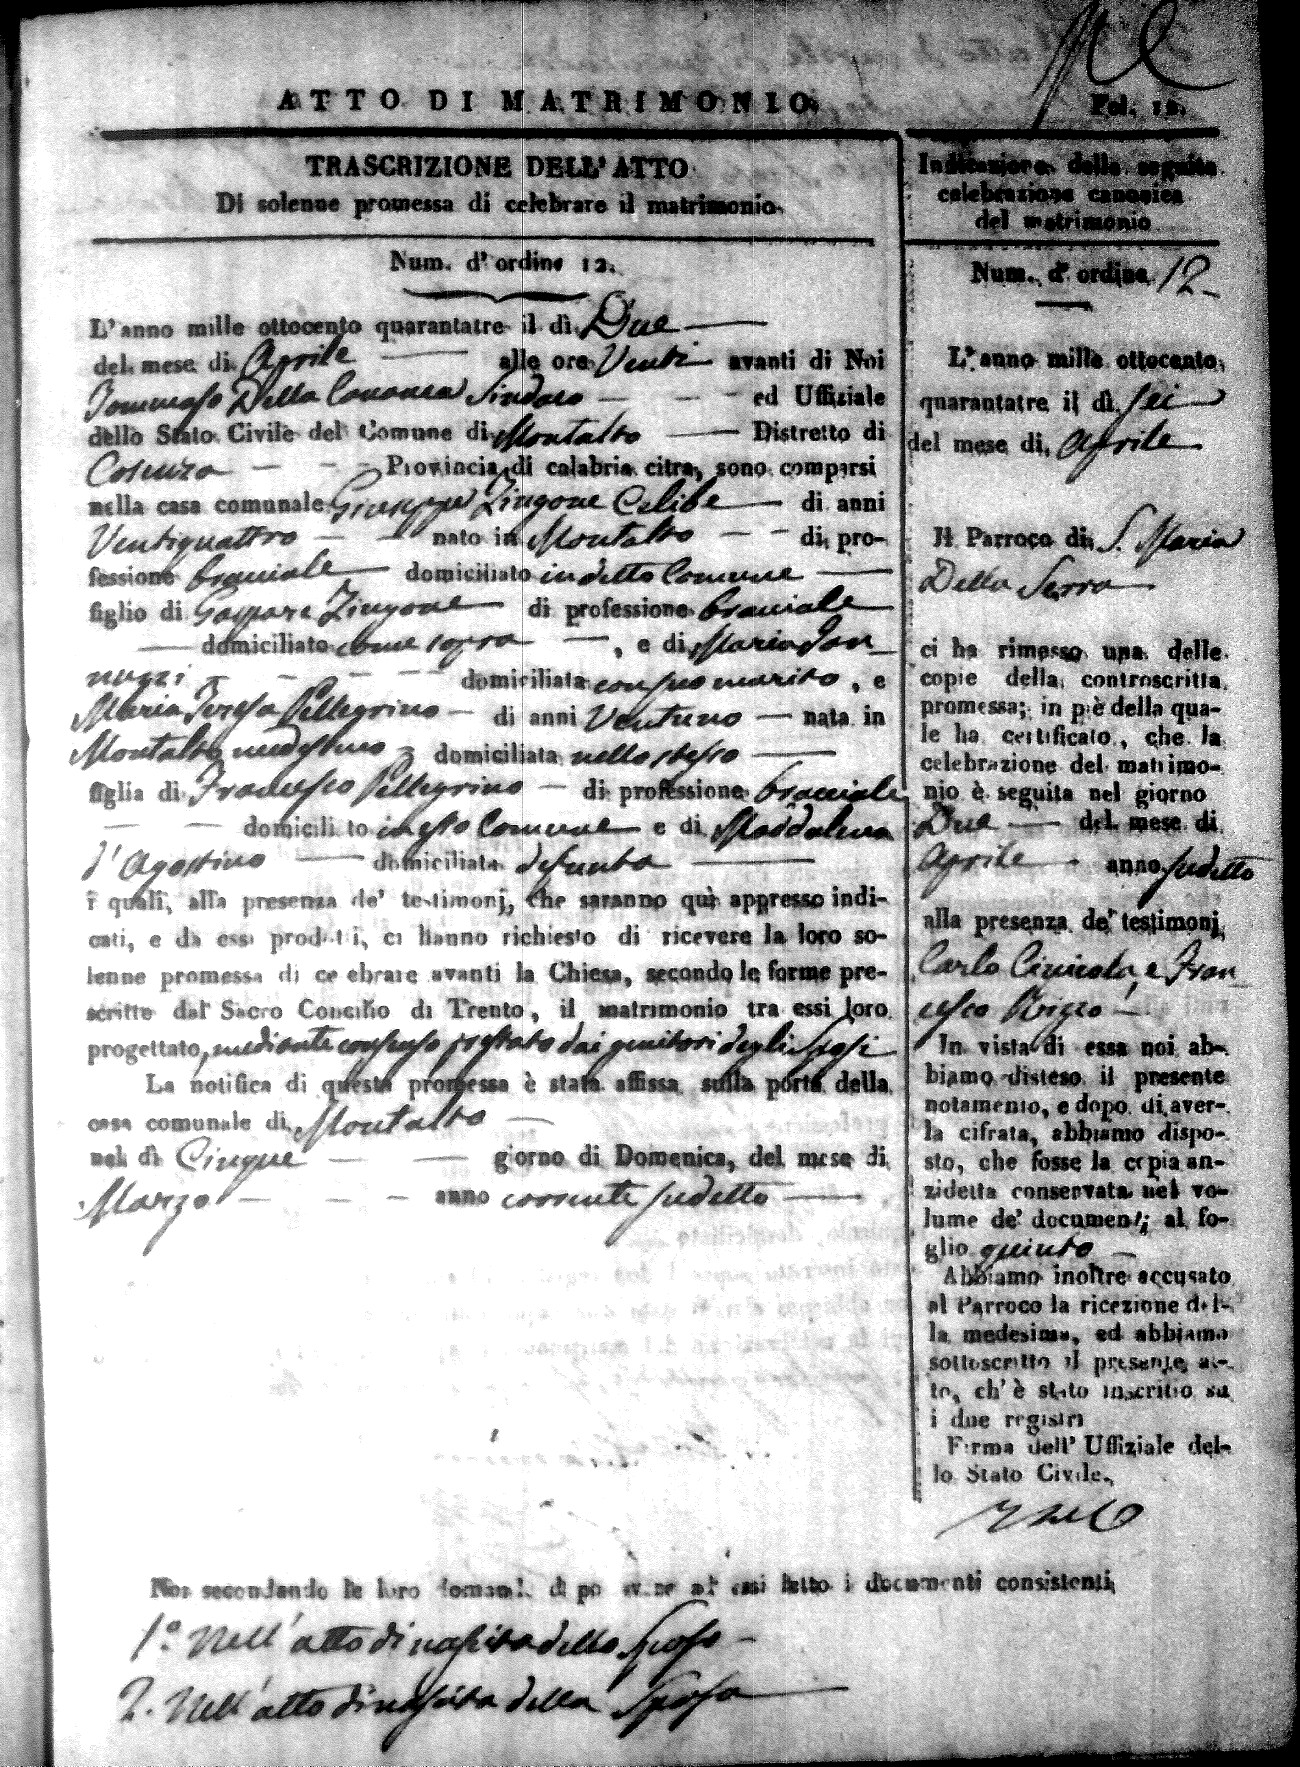 ATTO DI MATRIMONIO
Fol. 12.
TRASCRIZIONE DELL' ATTO
Di solenne promessa di celebrare il matrimonio.
Num. d' ordine 12.
L' anno mille ottocento quarantatre il dì Due
del mese di Aprile alle ore Venti avanti di Noi
Tommaso Della Cananea Sindaco ed Uffiziale
dello Stato Civile del Comune di Montalto Distretto di
Cosenza Provincia di calabria citra, sono comparsi
nella casa comunale Giuseppe Zingone Celibe di anni
Ventiquattro nato in Montalto di pro-
fessione bracciale domiciliato in detto Comune
figlio di Gaspare Zingone di professione bracciale
domiciliato come sopra , e di Maria Ian
nuzzi domiciliata con suo marito , e
Maria Teresa Pellegrino di anni Ventuno nata in
Montalto medesimo domiciliata nello stesso
figlia di Francesco Pellegrino di professione bracciale
domicili to in esso Comune e di Maddalena
d' Agostino domiciliata defunta
i quali, alla presenza de' testimonj, che saranno quì appresso indi-
cati, e da essi prodotti, ci hanno richiesto di ricevere la loro so-
lenne promessa di ce ebrare avanti la Chiesa, secondo le forme pre-
scritte dal Sacro Concilio di Trento, il matrimonio tra essi loro
progettato, mediante consenso prestato dai genitori degli Sposi
La notifica di questa promessa è stata affissa sulla porta della
casa comunale di Montalto
nel dì Cinque giorno di Domenica, del mese di
Marzo anno corrente sudetto
Noi secondando le loro domand. di po aver ad essi letto i documenti consistenti
1.º Nell' atto di nascita dello Sposo
2. Nell' atto di nascita della Sposa
Indicazione della seguita
celebrazione canonica
del matrimonio
Num. d' ordine 12
L' anno mille ottocento
quarantatre il dì sei
del mese di Aprile
Il Parroco di S. Maria
Della Serra
ci ha rimesso una delle
copie della controscritta
promessa; in piè della qua-
le ha certificato, che la
celebrazione del matrimo-
nio è seguita nel giorno
Due del mese di
Aprile anno sudetto
alla presenza de' testimonj
Carlo e Fran
cesco Rizzo
In vista di essa noi ab-
biamo disteso il presente
notamento, e dopo di aver-
la cifrata, abbiamo dispo-
sto, che fosse la copia an-
zidetta conservata nel vo-
lume de' documenti al fo-
glio quinto
Abbiamo inoltre accusato
al Parroco la ricezione del-
la medesima, ed abbiamo
sottoscritto il presente at-
to, ch' è stato inscritto su
i due registri
Firma dell' Uffiziale del-
lo Stato Civile.